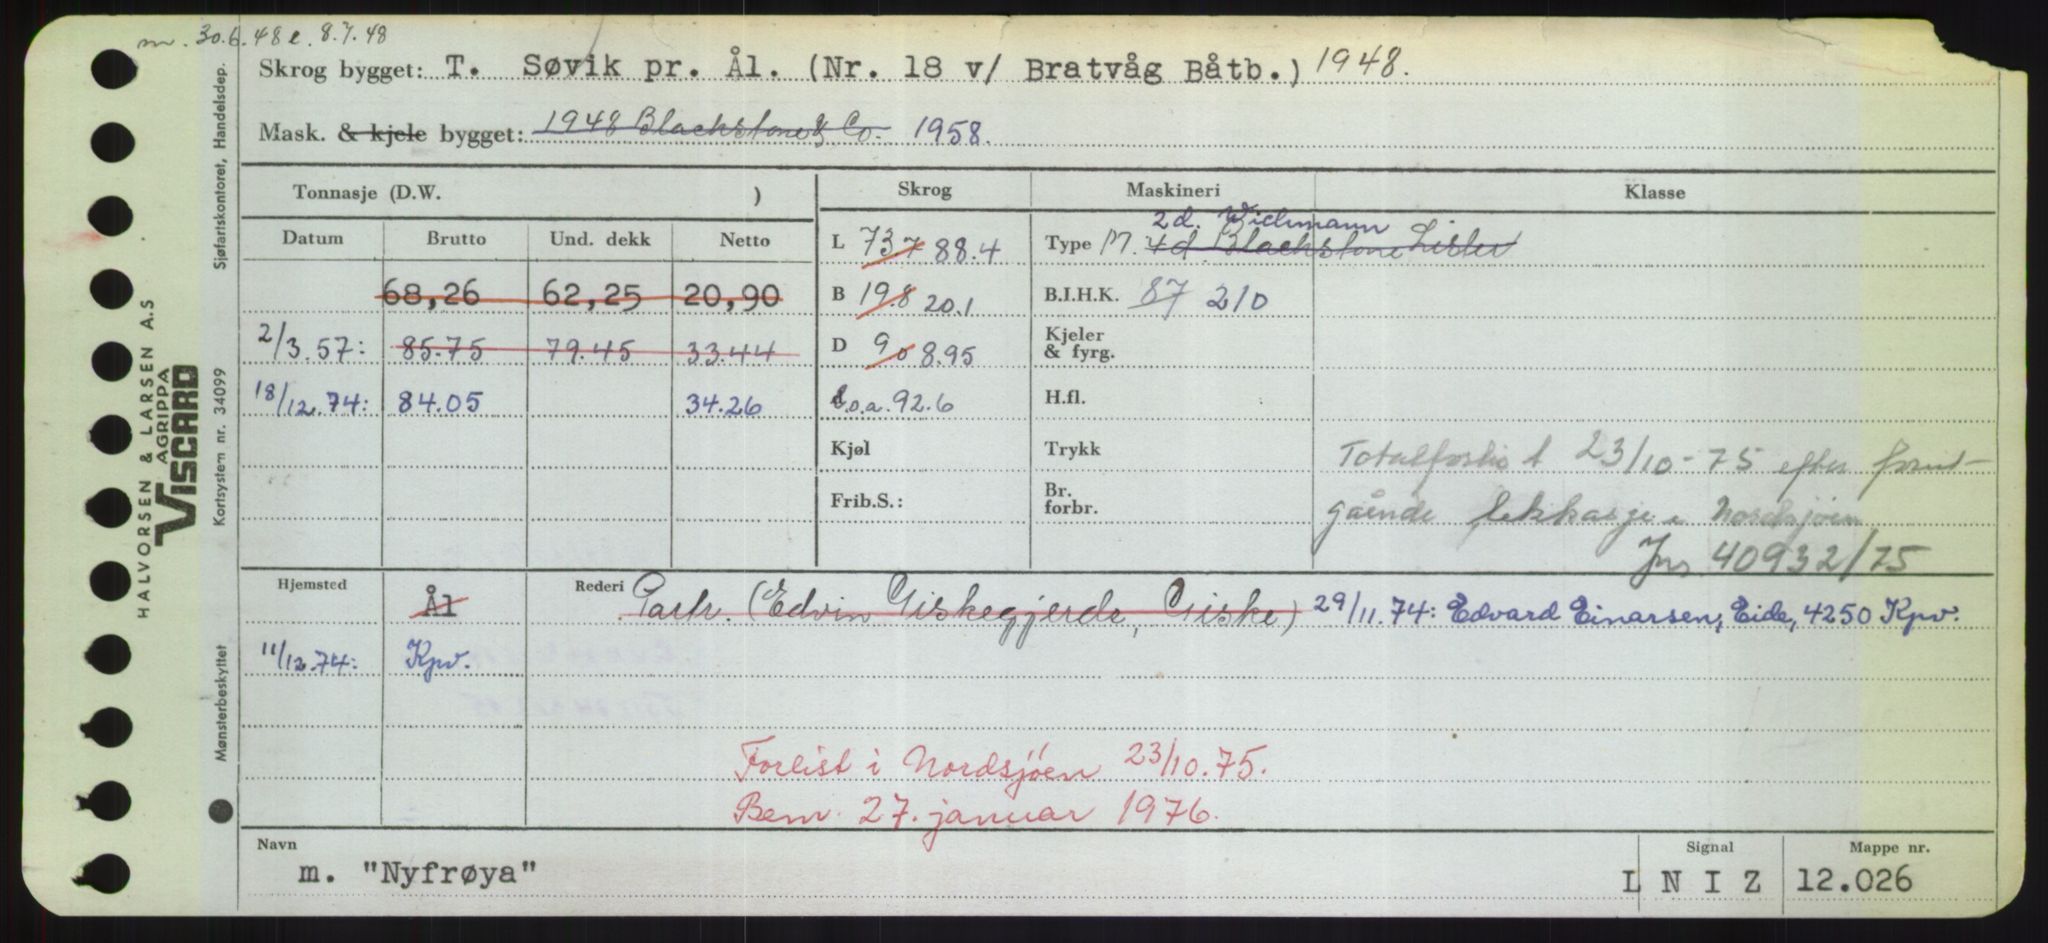 m. 30.6.48 e. 8.7.48
Skrog bygget: T. Søvik pr. Ål. (Nr. 18 v/ Bratvåg Båtb.) 1948.
Mask. & kjele bygget: 1948 Blackstone & Co. 1958.
Tonnasje (D.W. ) Skrog Maskineri Klasse
Datum Brutto Und. dekk Netto
L 73.7 88.4 Type M. 4d. Blackstone Lister 2d. Wichmann
68,26 62,25 20,90 B 19.8 20.1 B.I.H.K. 87 210
2/3.57: 85.75 79.45 33.44 D 9.0 8.95 Kjeler & fyrg.
18/12.74: 84.05 34.26 L.o.a. 92.6 H.fl.
Kjøl Trykk Totalforlis 23/10-75 efter forut-
Frib.S.: Br. forbr. gående lekkasje i Nordsjøen
Jns 40932/75
Hjemsted Ål Rederi Partr. (Edvin Giskegjerde, Giske) 29/11.74: Edvard Einarsen, Eide, 4250 Kpv.
11/12.74: Kpv.
Forlist i Nordsjøen 23/10.75.
Bem. 27. januar 1976.
Navn Signal Mappe nr.
m. "Nyfrøya" L N I Z 12.026
HALVORSEN & LARSEN A.S
AGRIPPA
VISCARD
Mønsterbeskyttet Kortsystem nr. 34099 Sjøfartskontoret, Handelsdep.